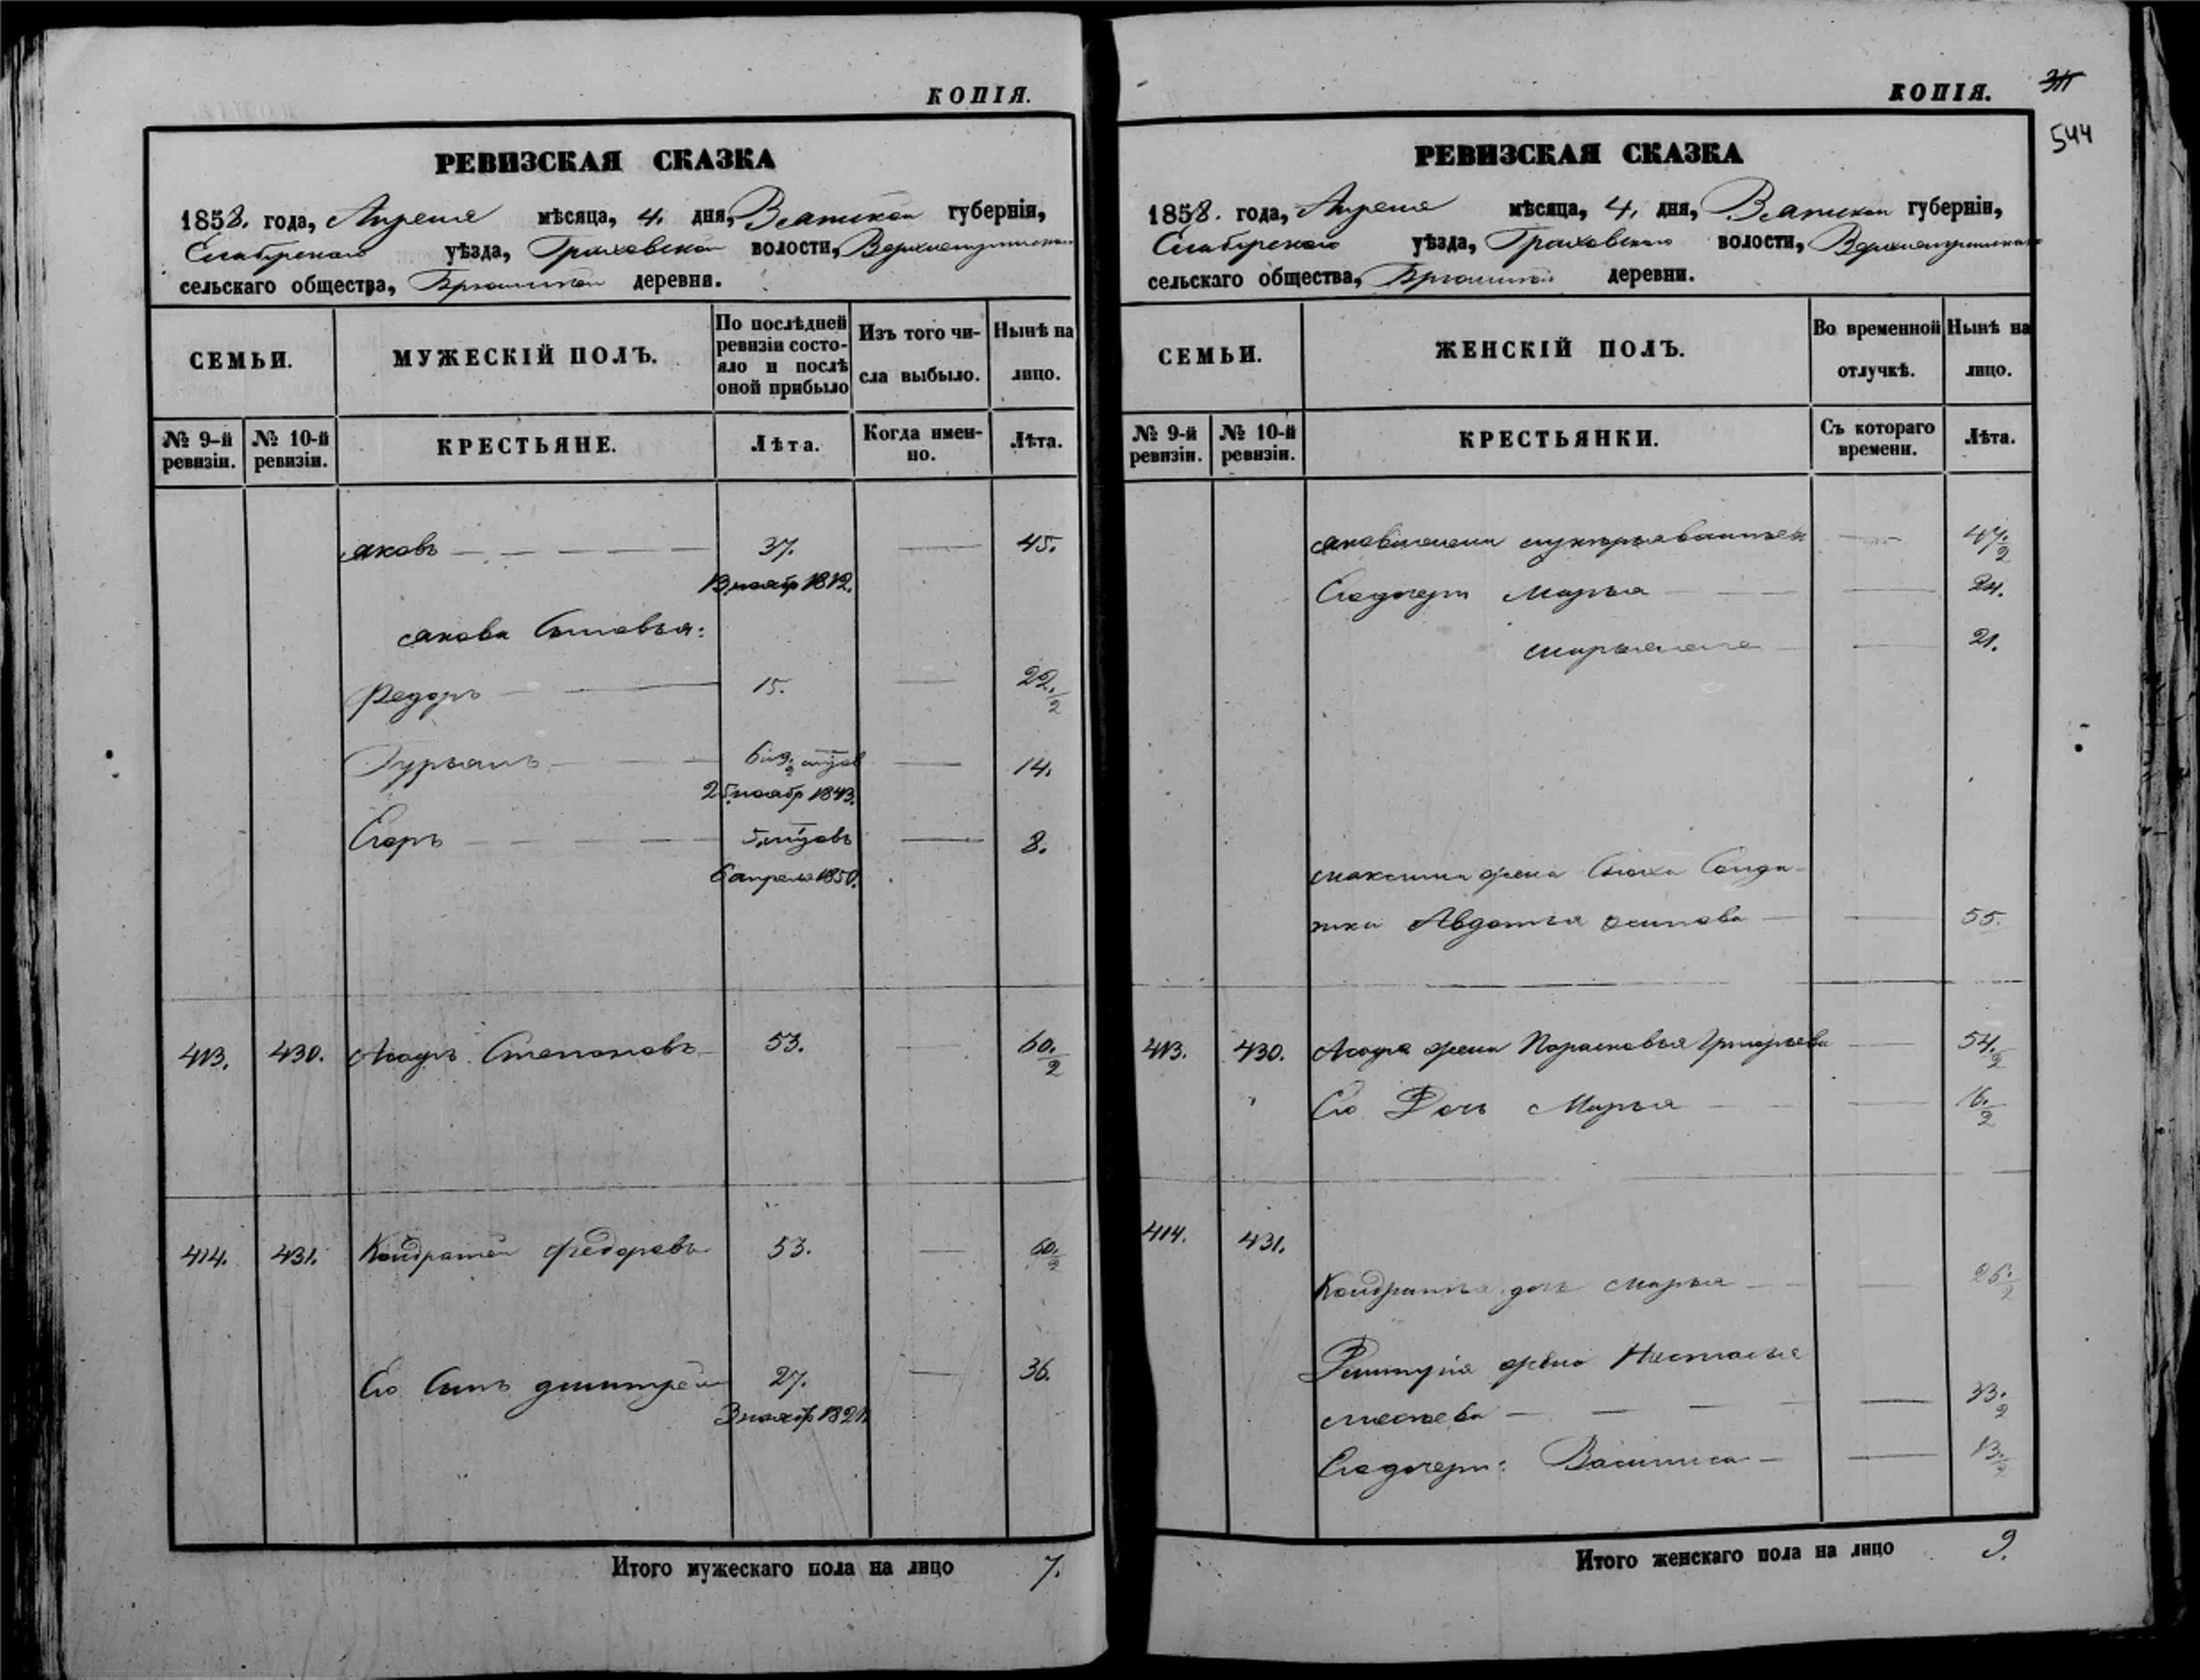 КОПІЯ.
РЕВИЗСКАЯ СКАЗКА
1858. года, Апреля мѣсяца, 4. дня, Вятской губерніи,
Елабужскаго уѣзда, Граховской волости,
сельскаго общества, деревни.
СЕМЬИ.
МУЖЕСКІЙ ПОЛЪ.
По послѣдней ревизіи состояло и послѣ оной прибыло
Изъ того числа выбыло.
Нынѣ на лицо.
№ 9-й ревизіи.
№ 10-й ревизіи.
КРЕСТЬЯНЕ.
Лѣта.
Когда именно.
Лѣта.
Яковъ 37. 45.
13 ноябр 1812.
Якова Сыновья:
Федоръ 15. 22. 1/2
Гурьянъ 14.
25 ноябр 1843.
Егоръ 8.
6 апреля 1850.
413. 430. Степановъ 53. 60. 1/2
414. 431. Кондратей Федоровъ 53. 60. 1/2
Его Сынъ Дмитрей 27. 36.
3 ноябр 1821
Итого мужескаго пола на лицо 7.
КОПІЯ.
544
РЕВИЗСКАЯ СКАЗКА
1858. года, Апреля мѣсяца, 4. дня, Вятской губерніи,
Елабужскаго уѣзда, Граховской волости,
сельскаго общества, деревни.
СЕМЬИ.
ЖЕНСКІЙ ПОЛЪ.
Во временной отлучкѣ.
Нынѣ на лицо.
№ 9-й ревизіи.
№ 10-й ревизіи.
КРЕСТЬЯНКИ.
Съ котораго времени.
Лѣта.
47. 1/2
Его дочери Марья 24.
21.
Максима жена Солда-
тка Авдотья Осипова 55.
413. 430. жена Парасковья Григорьева 54. 1/2
Его Дочь Марья 16. 1/2
414. 431.
Кондратья дочь Марья 26. 1/2
Дмитрія жена Настасья
33. 1/2
Его дочери: Василиса 13. 1/2
Итого женскаго пола на лицо 9.